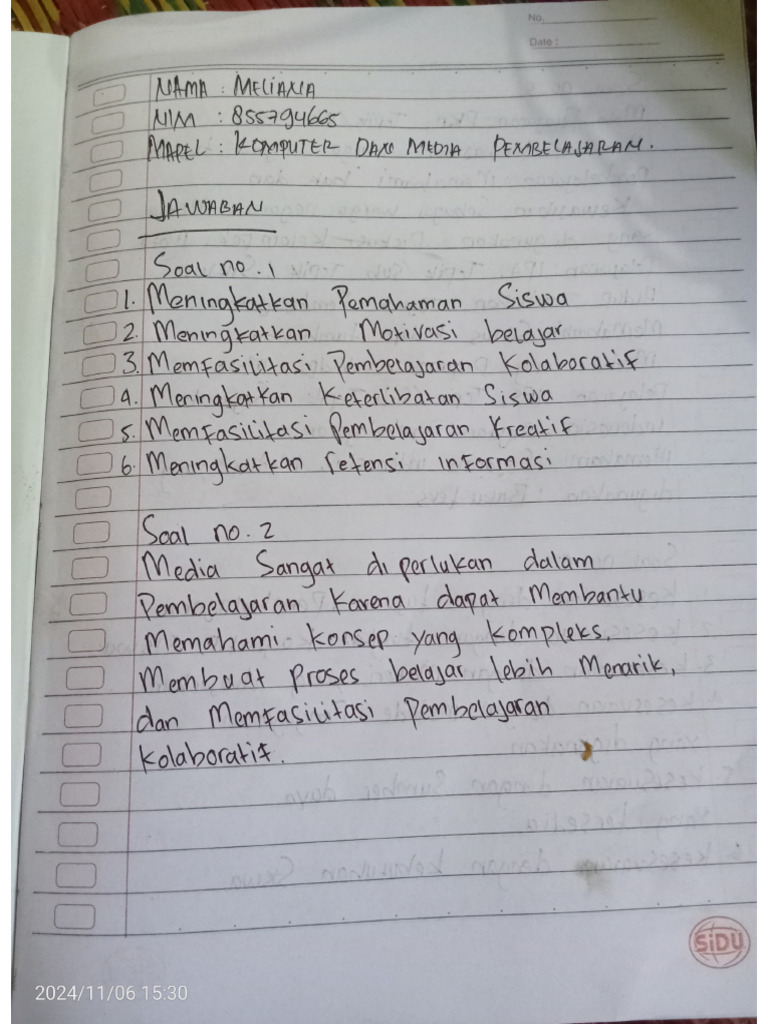 No.
Date :
NAMA : MELIANA
NIM : 855794665
MAPEL : KOMPUTER DAN MEDIA PEMBELAJARAN.
JAWABAN
Soal no. 1
1. Meningkatkan Pemahaman Siswa
2. Meningkatkan Motivasi belajar
3. Memfasilitasi Pembelajaran Kolaboratif
4. Meningkatkan Keterlibatan Siswa
5. Memfasilitasi Pembelajaran Kreatif
6. Meningkatkan retensi informasi
Soal no. 2
Media Sangat diperlukan dalam
Pembelajaran Karena dapat Membantu
Memahami Konsep yang Kompleks,
Membuat proses belajar lebih Menarik,
dan Memfasilitasi Pembelajaran
Kolaboratif.
SiDU
2024/11/06 15:30